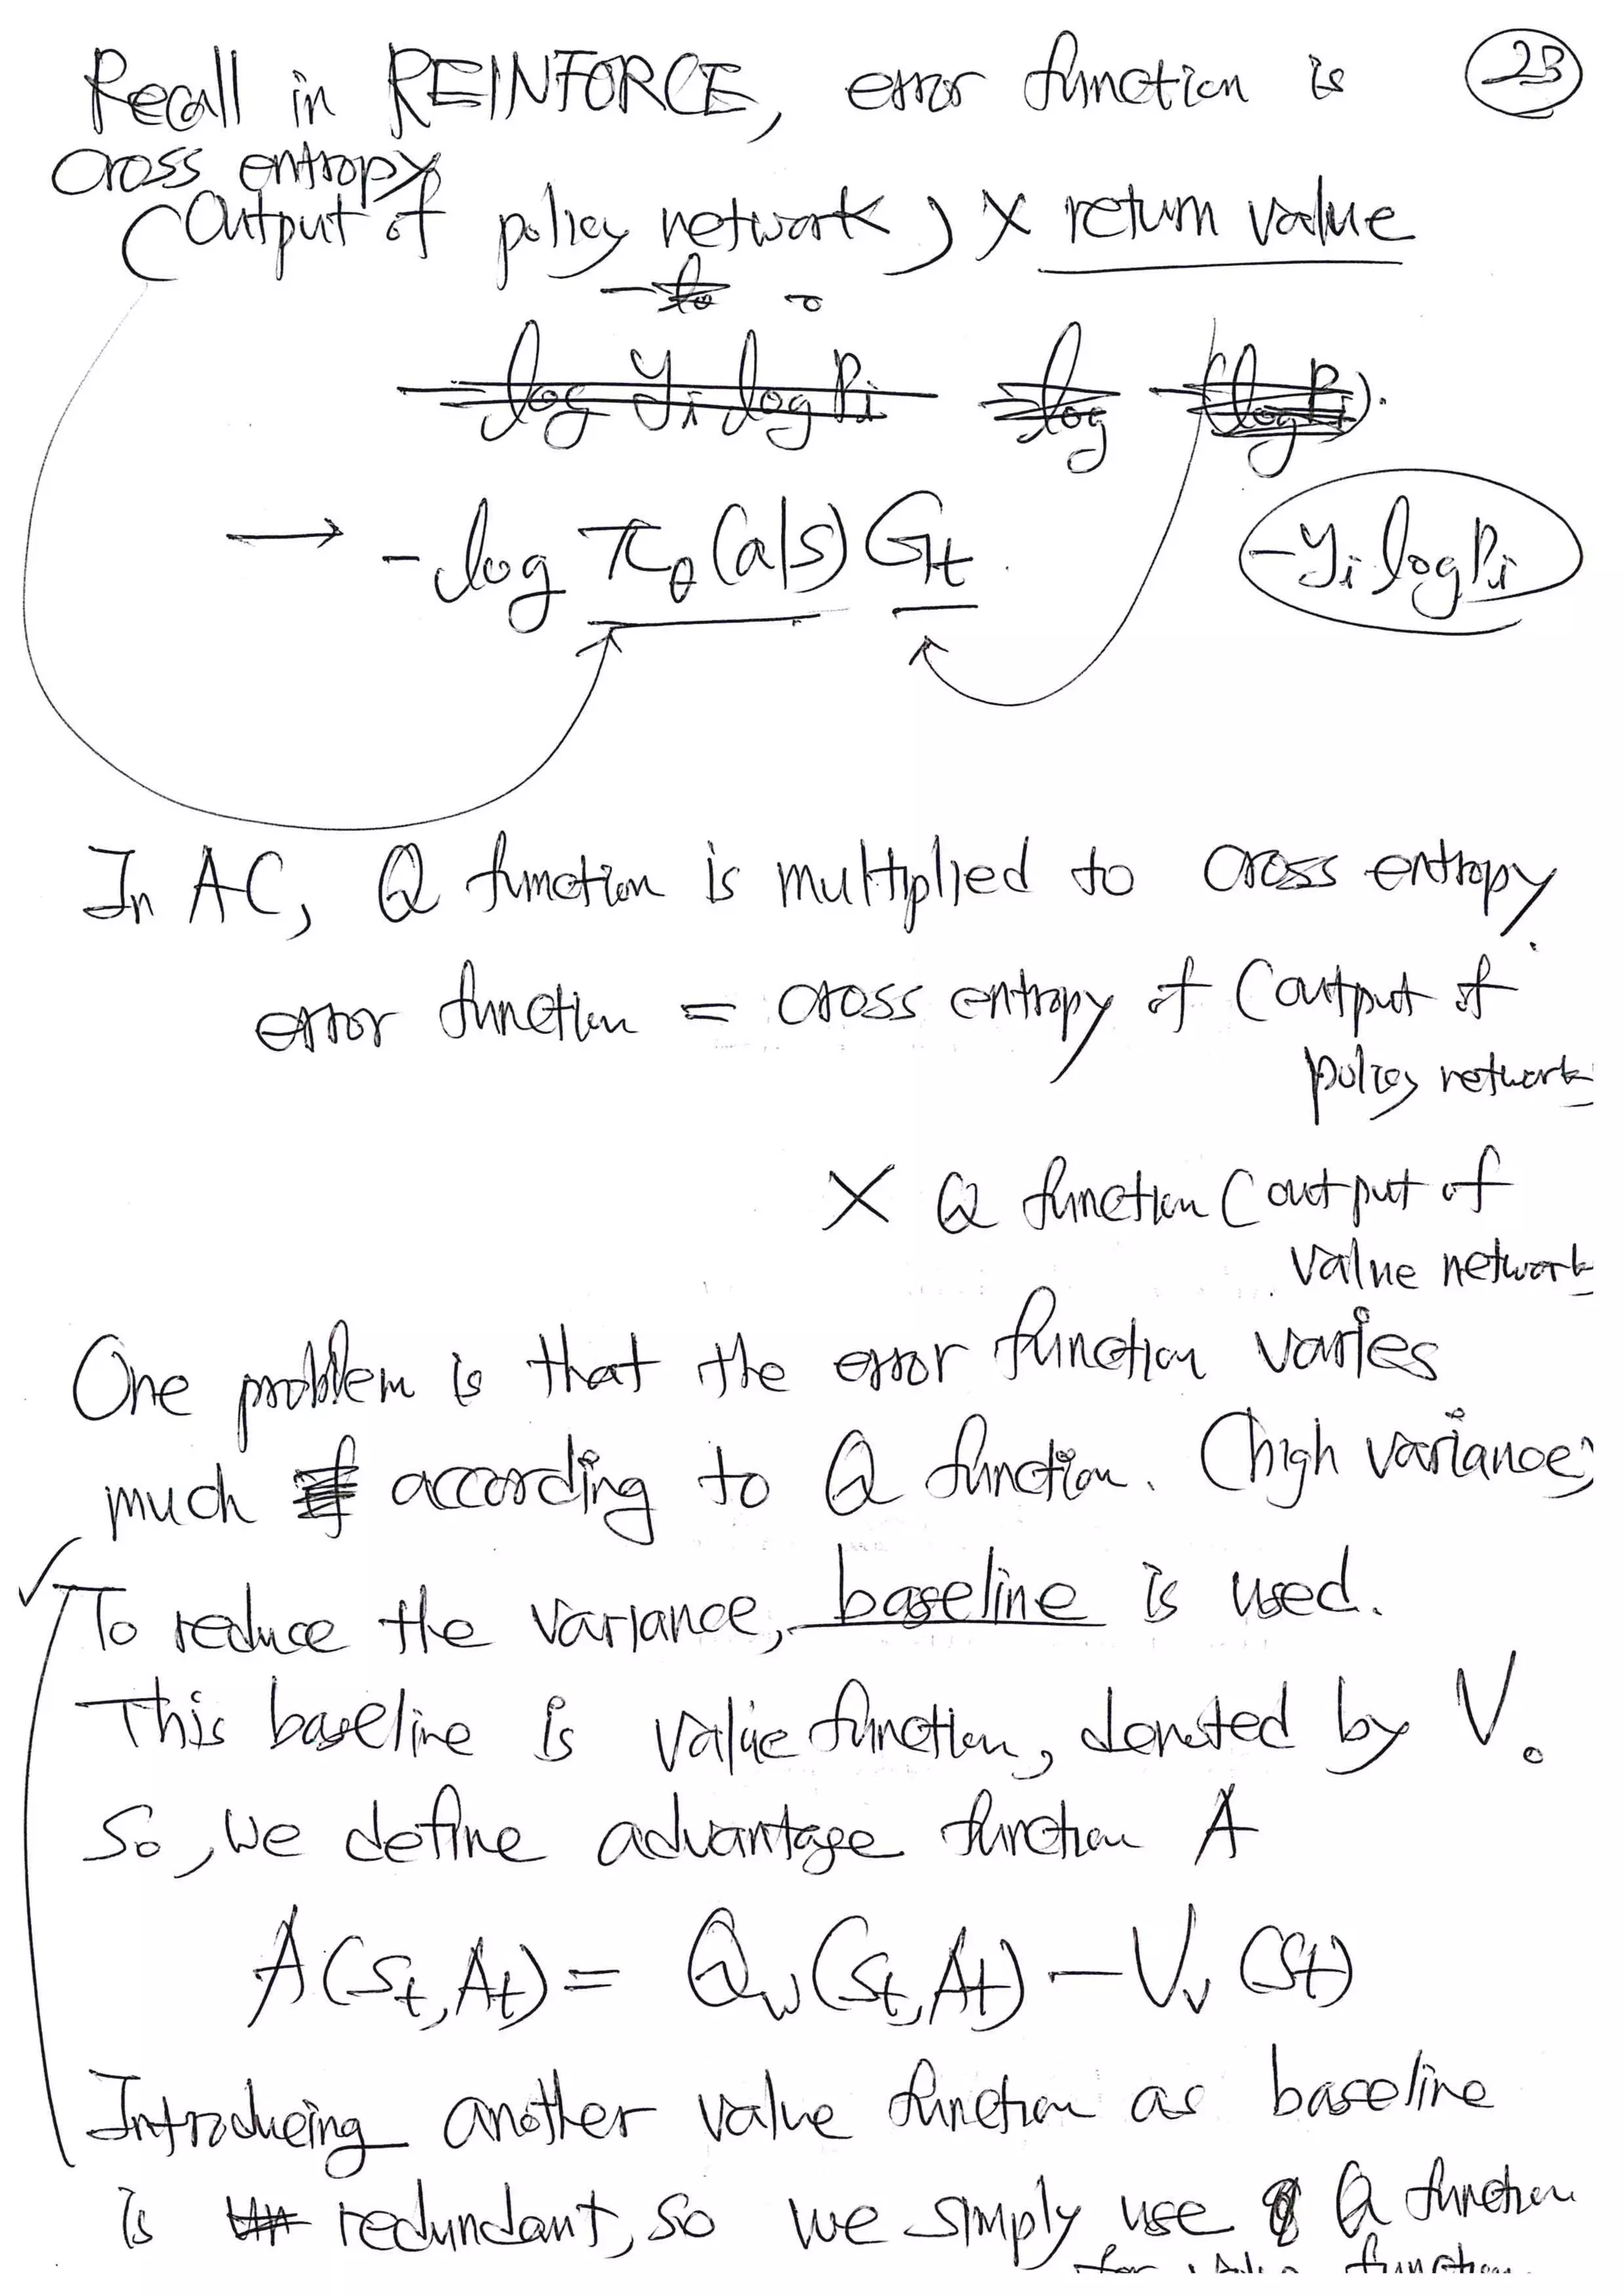 Recall in REINFORCE, error function is 23
cross entropy
(Output of policy network) × return value
- log y_i log P_i - log - (log P_i).
→ - log π_θ(a|s) G_t.
- y_i log P_i
In AC, Q function is multiplied to cross entropy.
error function = cross entropy of (output of
policy network
× Q function (output of
value network
One problem is that the error function varies
much according to Q function. (high variance)
To reduce the variance, baseline is used.
This baseline is value function, denoted by V.
So, we define advantage function A
A(S_t, A_t) = Q_w(S_t, A_t) - V_v(S_t)
Introducing another value function as baseline
is redundant, so we simply use Q function
for value function